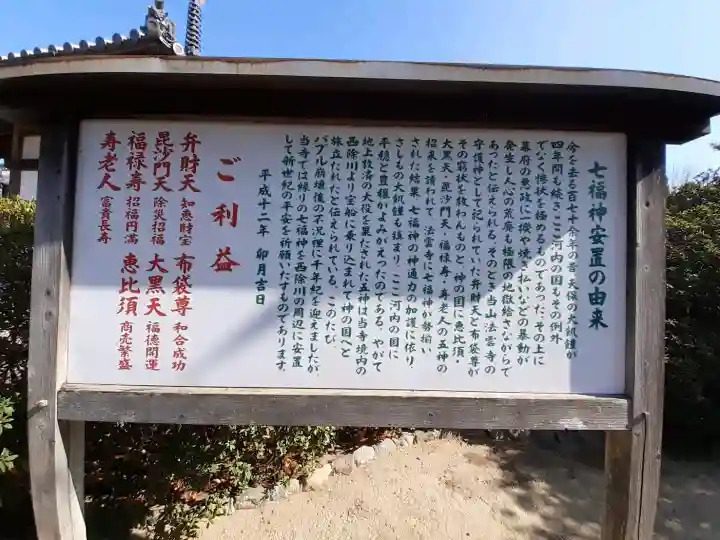 七福神安置の由来
今を去る百六十余年の昔、天保の大飢饉が
四年間も続き、ここ河内の国もその例外
でなく惨状を極めるものであった。その上に
幕府の悪政に一揆や焼き払いなどの暴動が
発生し人心の荒廃も極限の地獄絵さながらで
あったと伝えられる。そのとき当山法雲寺の
守護神として祀られていた弁財天と布袋尊が
その窮状を救わんものと、神の国に恵比須・
大黒天・毘沙門天・福禄寿・寿老人の五神の
招来を請われて、法雲寺に七福神が勢揃い
された結果、七福神の神通力の加護に依り
さしもの大飢饉も鎮まり、ここ河内の国に
平穏と豊穣がよみがえったのである。やがて
地上救済の大役を果たされた五神は当寺境内の
西除川より宝船に乗り込まれて神の国へと
旅立たれたと伝えられている。このたび、
バブル崩壊後の不況裡に千年紀を迎えましたが、
当寺では縁りの七福神を西除川の周辺に安置
して新世紀の平安を祈願いたすものであります。
平成十二年 卯月吉日
ご利益
弁財天 知恵財宝 布袋尊 和合成功
毘沙門天 除災招福 大黒天 福徳開運
福禄寿 招福円満 恵比須 商売繁盛
寿老人 富貴長寿